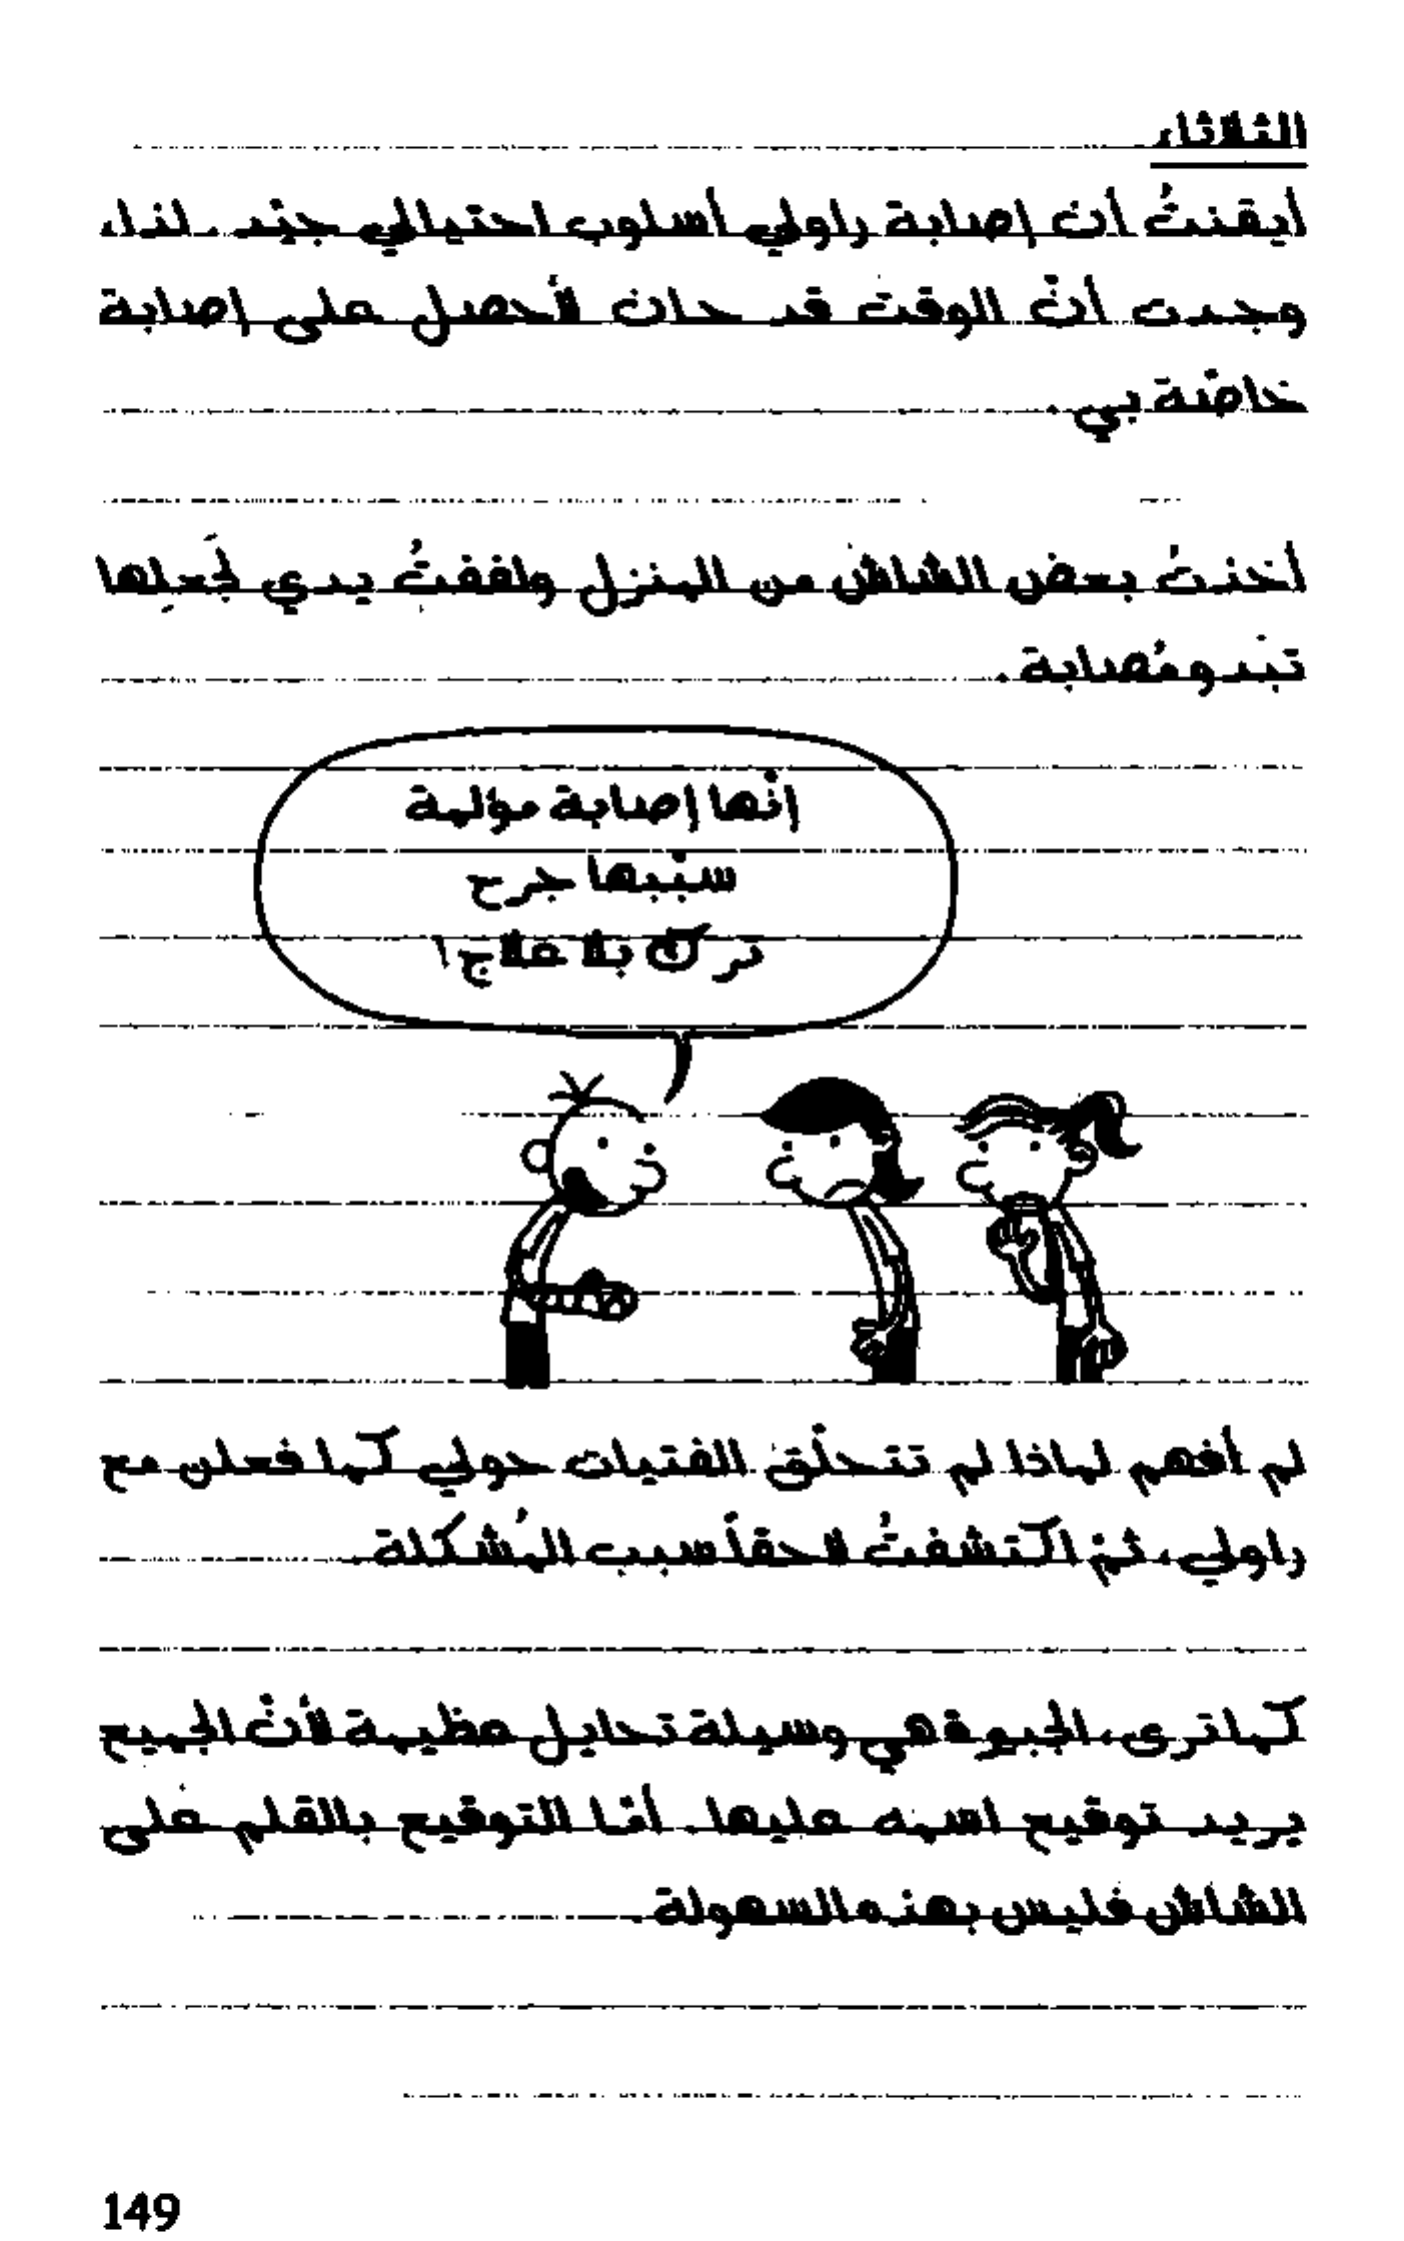 الثلاثاء
أيقنتُ أن إصابة راولي أسلوب احتيالي جيّد. لذا،
وجدت أنّ الوقت قد حان لأحصل على إصابة
خاصّة بي.
أخذتُ بعض الشاش من المنزل ولففتُ يدي لجَعلِها
تبْدو مُصابة.
إنّها إصابة مؤلمة
سبّبها جرح
ترك بلا علاج!
لم أفهم لماذا لم تتحلّق الفتيات حولي كما فعلن مع
راولي، ثمّ اكتشفتُ لاحقاً سبب المُشكلة.
كما ترى، الجبيرة هي وسيلة تحايل عظيمة لأنّ الجميع
يريد توقيع اسمه عليها. أمّا التوقيع بالقلم على
الشاش فليس بهذه السهولة.
149